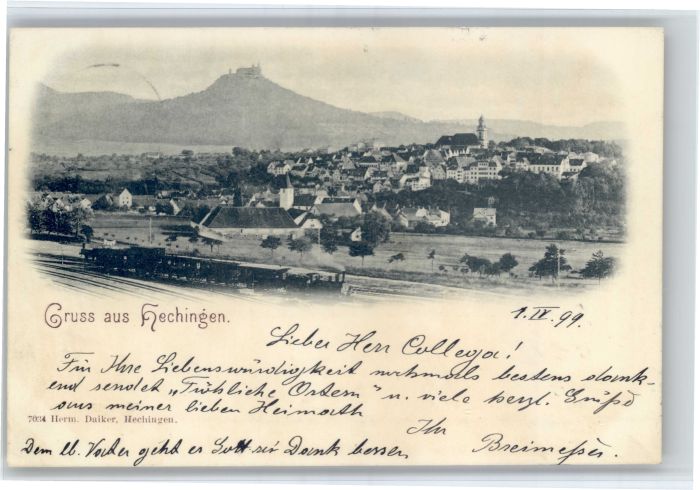 Gruss aus Hechingen.
1. IV. 99.
Lieber Herr Collega!
Für Ihre Liebenswürdigkeit nochmals bestens dank-
end sendet „Fröhliche Ostern" u. viele herzl. Grüße
aus meiner lieben Heimath
Ihr
7024 Herm. Daiker, Hechingen.
Dem lb. Vater geht es Gott sei Dank besser.